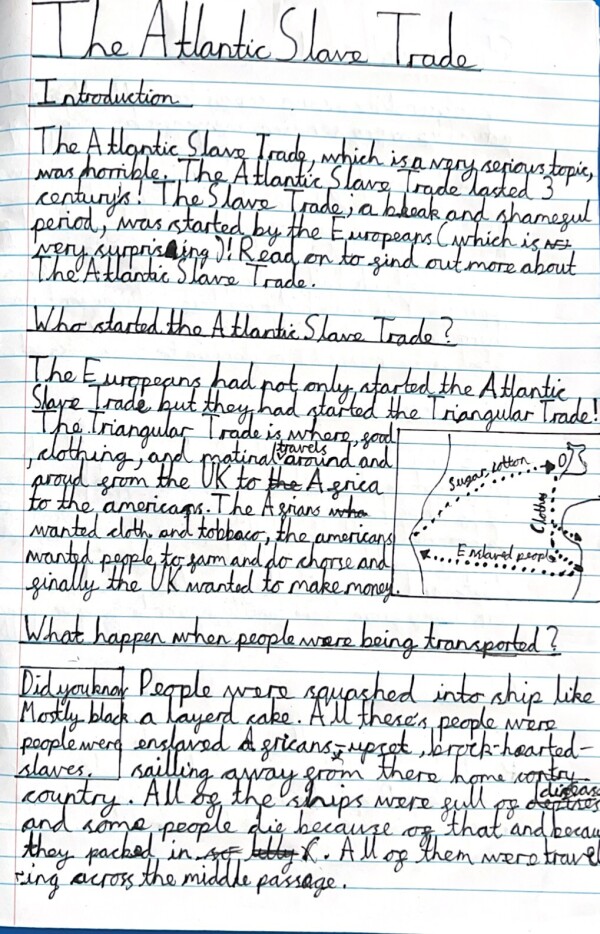 The Atlantic Slave Trade
Introduction
The Atlantic Slave Trade, which is a very serious topic,
was horrible. The Atlantic Slave Trade lasted 3
century's! The Slave Trade, a bleak and shameful
period, was started by the Europeans (which is
very surprising)! Read on to find out more about
The Atlantic Slave Trade.
Who started the Atlantic Slave Trade?
The Europeans had not only started the Atlantic
Slave Trade but they had started the Triangular Trade!
The Triangular Trade is where, food
, clothing, and matinal travels around and
proud from the UK to the Africa
to the americans. The Afrians
wanted cloth and tobbaco, the americans
wanted people to farm and do chorse and
finally the UK wanted to make money.
Sugar, cotton
Clothes
Enslaved people
What happen when people were being transported?
Did you know
Mostly black
people were
slaves.
People were squashed into ship like
a layerd cake. All these's people were
enslaved Africans, upset, brock-hearted-
sailling away from there home contry
country. All of the ships were full of diseas
and some people die because of that and becau
they packed in. All of them were travel
ing across the middle passage.